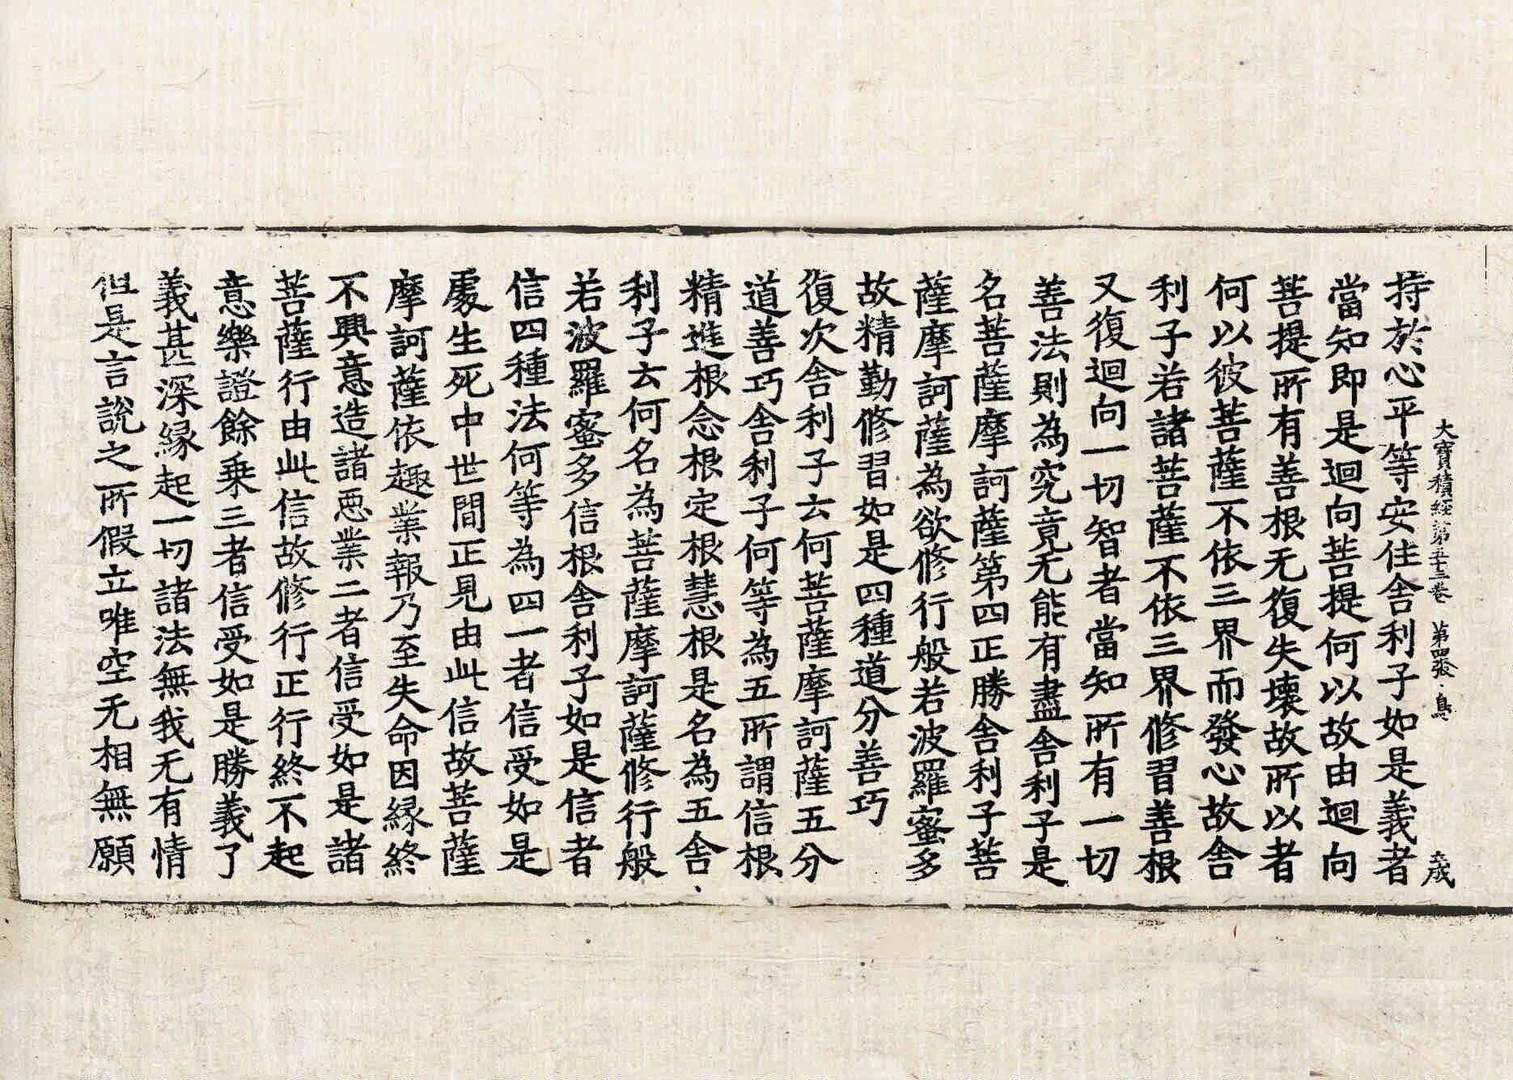 大寶積經第五十三卷 第四張 鳥
持於心平等安住舍利子如是義者
當知即是迴向菩提何以故由迴向
菩提所有善根无復失壞故所以者
何以彼菩薩不依三界而發心故舍
利子若諸菩薩不依三界修習善根
又復迴向一切智者當知所有一切
善法則為究竟无能有盡舍利子是
名菩薩摩訶薩第四正勝舍利子菩
薩摩訶薩為欲修行般若波羅蜜多
故精勤修習如是四種道分善巧
復次舍利子云何菩薩摩訶薩五分
道善巧舍利子何等為五所謂信根
精進根念根定根慧根是名為五舍
利子云何名為菩薩摩訶薩修行般
若波羅蜜多信根舍利子如是信者
信四種法何等為四一者信受如是
處生死中世間正見由此信故菩薩
摩訶薩依趣業報乃至失命因緣終
不興意造諸惡業二者信受如是諸
菩薩行由此信故修行正行終不起
意樂證餘乘三者信受如是勝義了
義甚深緣起一切諸法無我无有情
但是言說之所假立唯空无相無願